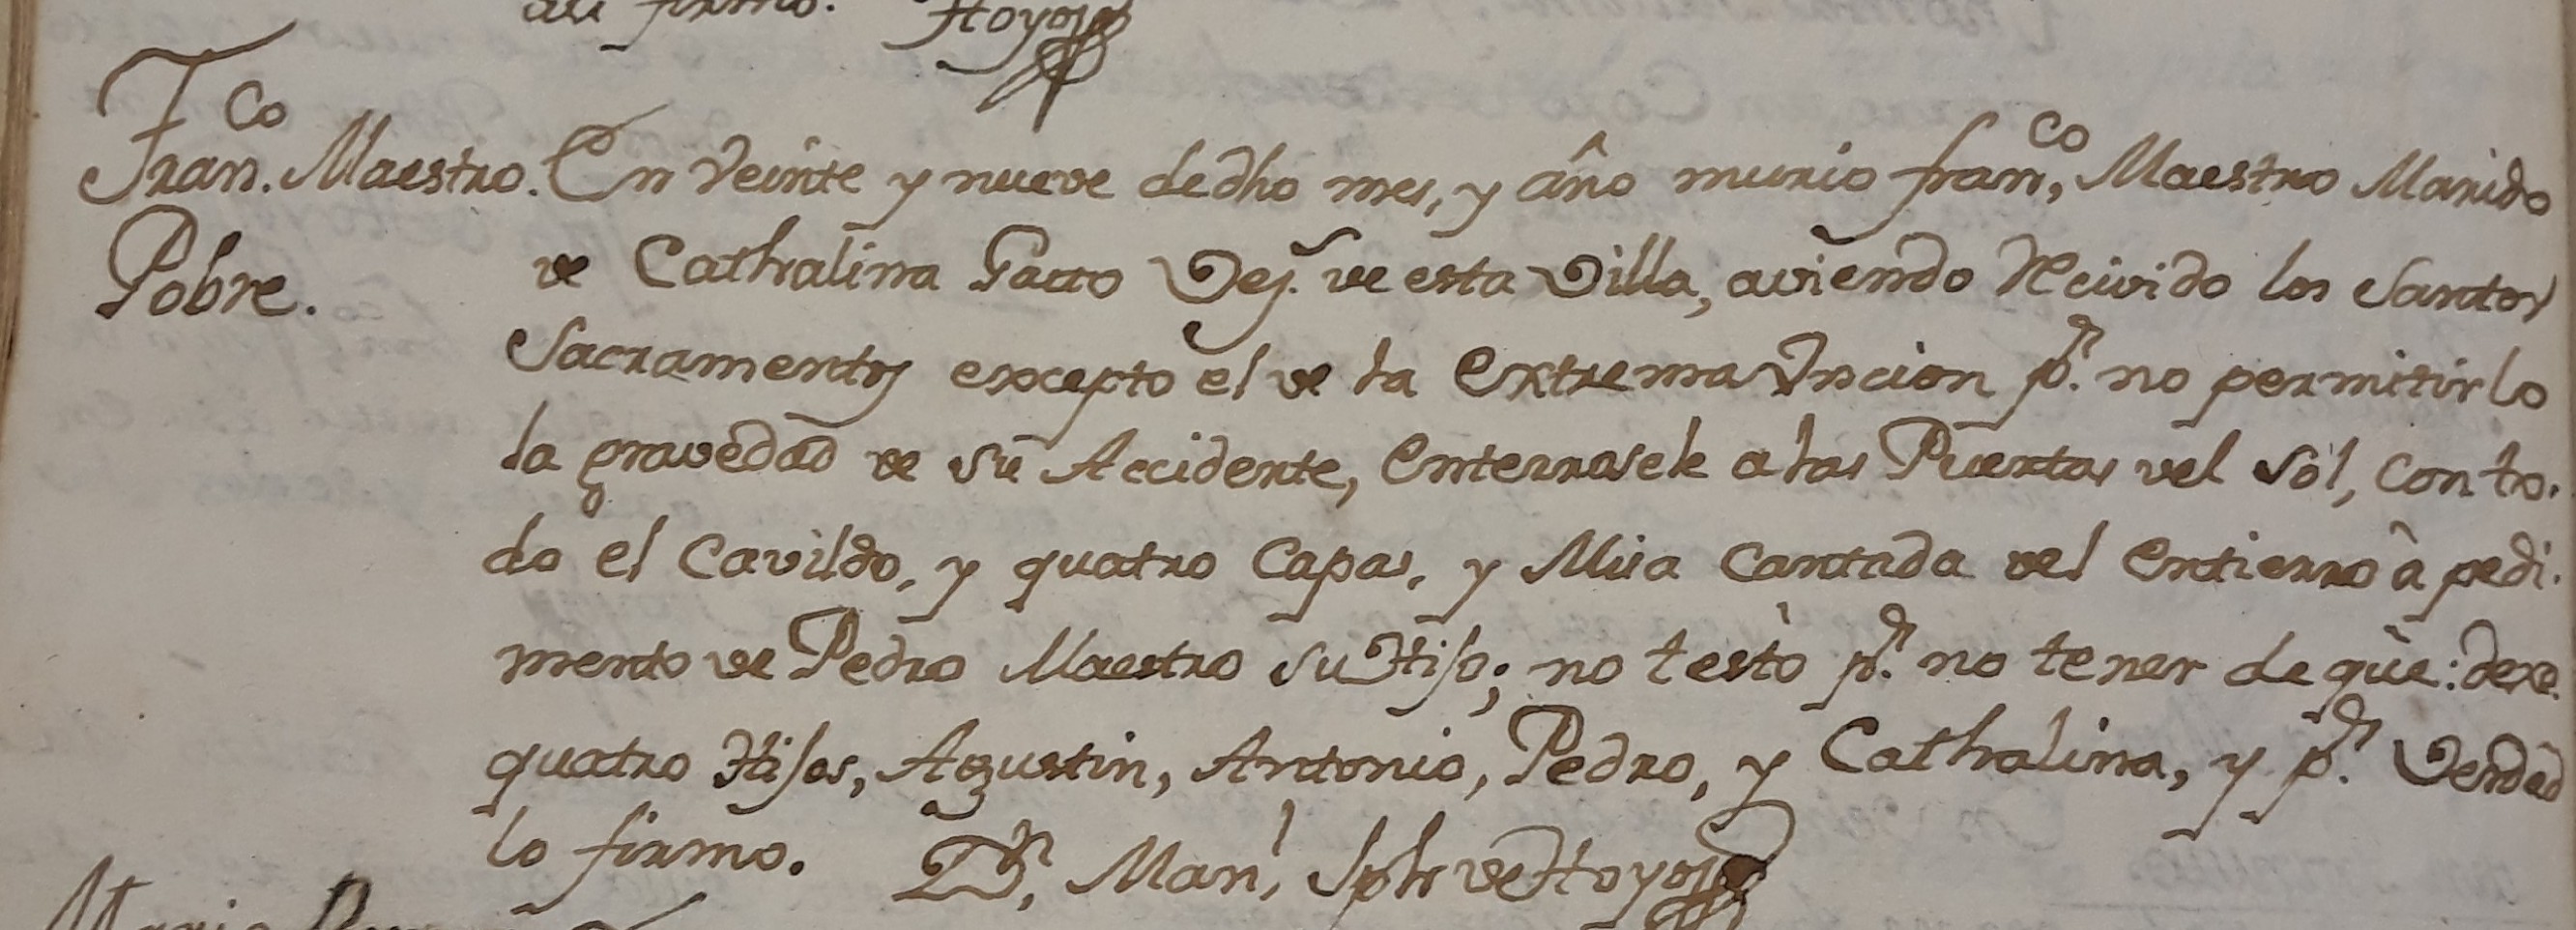 asi firmo. Hoyos
Fran.co Maestro.
Pobre.
En veinte y nueve de dho mes, y año murio fran,co Maestro Marido
de Cathalina Vez.s de esta Villa, aviendo Recivido los Santos
Sacramentos excepto el de la Extrema Vncion p.r no permitirlo
la gravedad de su Accidente, Enterrosele a las Puertas del Sol, con to.
do el Cavildo, y quatro Capas, y Misa Cantada del Entierro à pedi.
mento de Pedro Maestro su Hijo; no testò p.r no tener de què: dexo
quatro Hijos, Agustin, Antonio, Pedro, y Cathalina, y p.r Verdad
lo firmo. D.n Man.l Jph de Hoyos
Maria